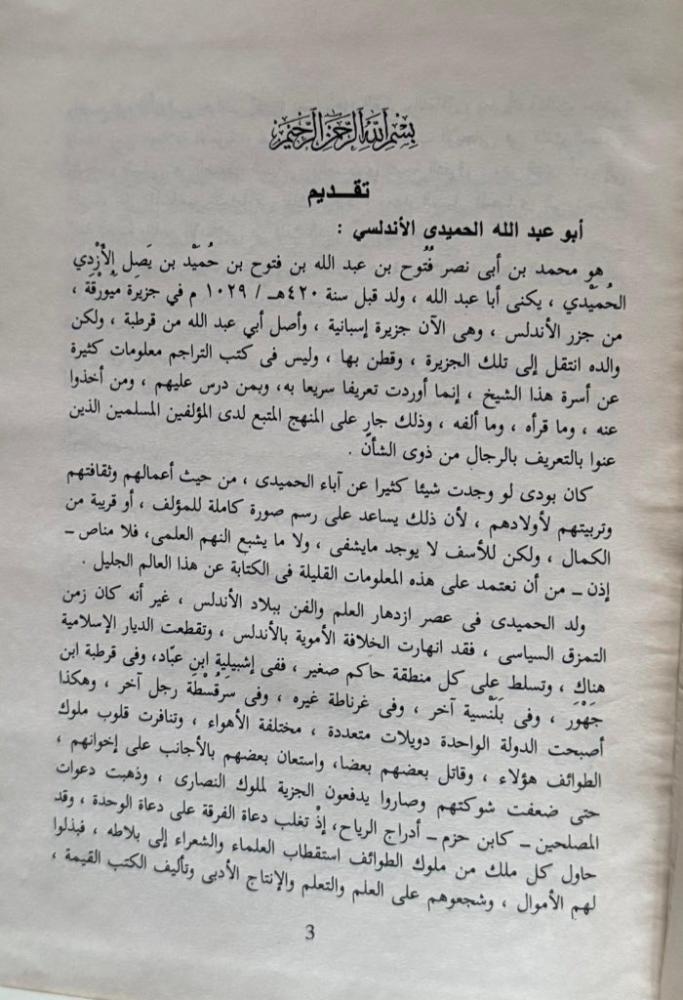 بسم الله الرحمن الرحيم
تقـديم
أبو عبد الله الحميدى الأندلسي :
هو محمد بن أبى نصر فُتُوح بن عبد الله بن فتوح بن حُمَيْد بن يَصَل الأَزْدِي
الحُمَيْدي ، يكنى أبا عبد الله ، ولد قبل سنة ٤٢٠هـ / ١٠٢٩ م في جزيرة مَيُورْقَة ،
من جزر الأندلس ، وهى الآن جزيرة إسبانية ، وأصل أبي عبد الله من قرطبة ، ولكن
والده انتقل إلى تلك الجزيرة ، وقطن بها ، وليس فى كتب التراجم معلومات كثيرة
عن أسرة هذا الشيخ ، إنما أوردت تعريفا سريعا به، وبمن درس عليهم ، ومن أخذوا
عنه ، وما قرأه ، وما ألفه ، وذلك جارٍ على المنهج المتبع لدى المؤلفين المسلمين الذين
عنوا بالتعريف بالرجال من ذوى الشأن .
كان بودى لو وجدت شيئا كثيرا عن آباء الحميدى ، من حيث أعمالهم وثقافتهم
وتربيتهم لأولادهم ، لأن ذلك يساعد على رسم صورة كاملة للمؤلف ، أو قريبة من
الكمال ، ولكن للأسف لا يوجد مايشفى ، ولا ما يشبع النهم العلمى، فلا مناص ـ
إذن ـ من أن نعتمد على هذه المعلومات القليلة فى الكتابة عن هذا العالم الجليل .
ولد الحميدى فى عصر ازدهار العلم والفن ببلاد الأندلس ، غير أنه كان زمن
التمزق السياسى ، فقد انهارت الخلافة الأموية بالأندلس ، وتقطعت الديار الإسلامية
هناك ، وتسلط على كل منطقة حاكم صغير ، ففى إشبيلية ابن عبّاد، وفى قرطبة ابن
جَهْوَر ، وفى بَلَنْسية آخر ، وفى غرناطة غيره ، وفى سَرَقُسْطَة رجل آخر ، وهكذا
أصبحت الدولة الواحدة دويلات متعددة ، مختلفة الأهواء ، وتنافرت قلوب ملوك
الطوائف هؤلاء ، وقاتل بعضهم بعضا، واستعان بعضهم بالأجانب على إخوانهم ،
حتى ضعفت شوكتهم وصاروا يدفعون الجزية لملوك النصارى ، وذهبت دعوات
المصلحين ـ كابن حزم ـ أدراج الرياح، إذْ تغلب دعاة الفرقة على دعاة الوحدة ، وقد
حاول كل ملك من ملوك الطوائف استقطاب العلماء والشعراء إلى بلاطه ، فبذلوا
لهم الأموال ، وشجعوهم على العلم والتعلم والإنتاج الأدبى وتأليف الكتب القيمة ،
3